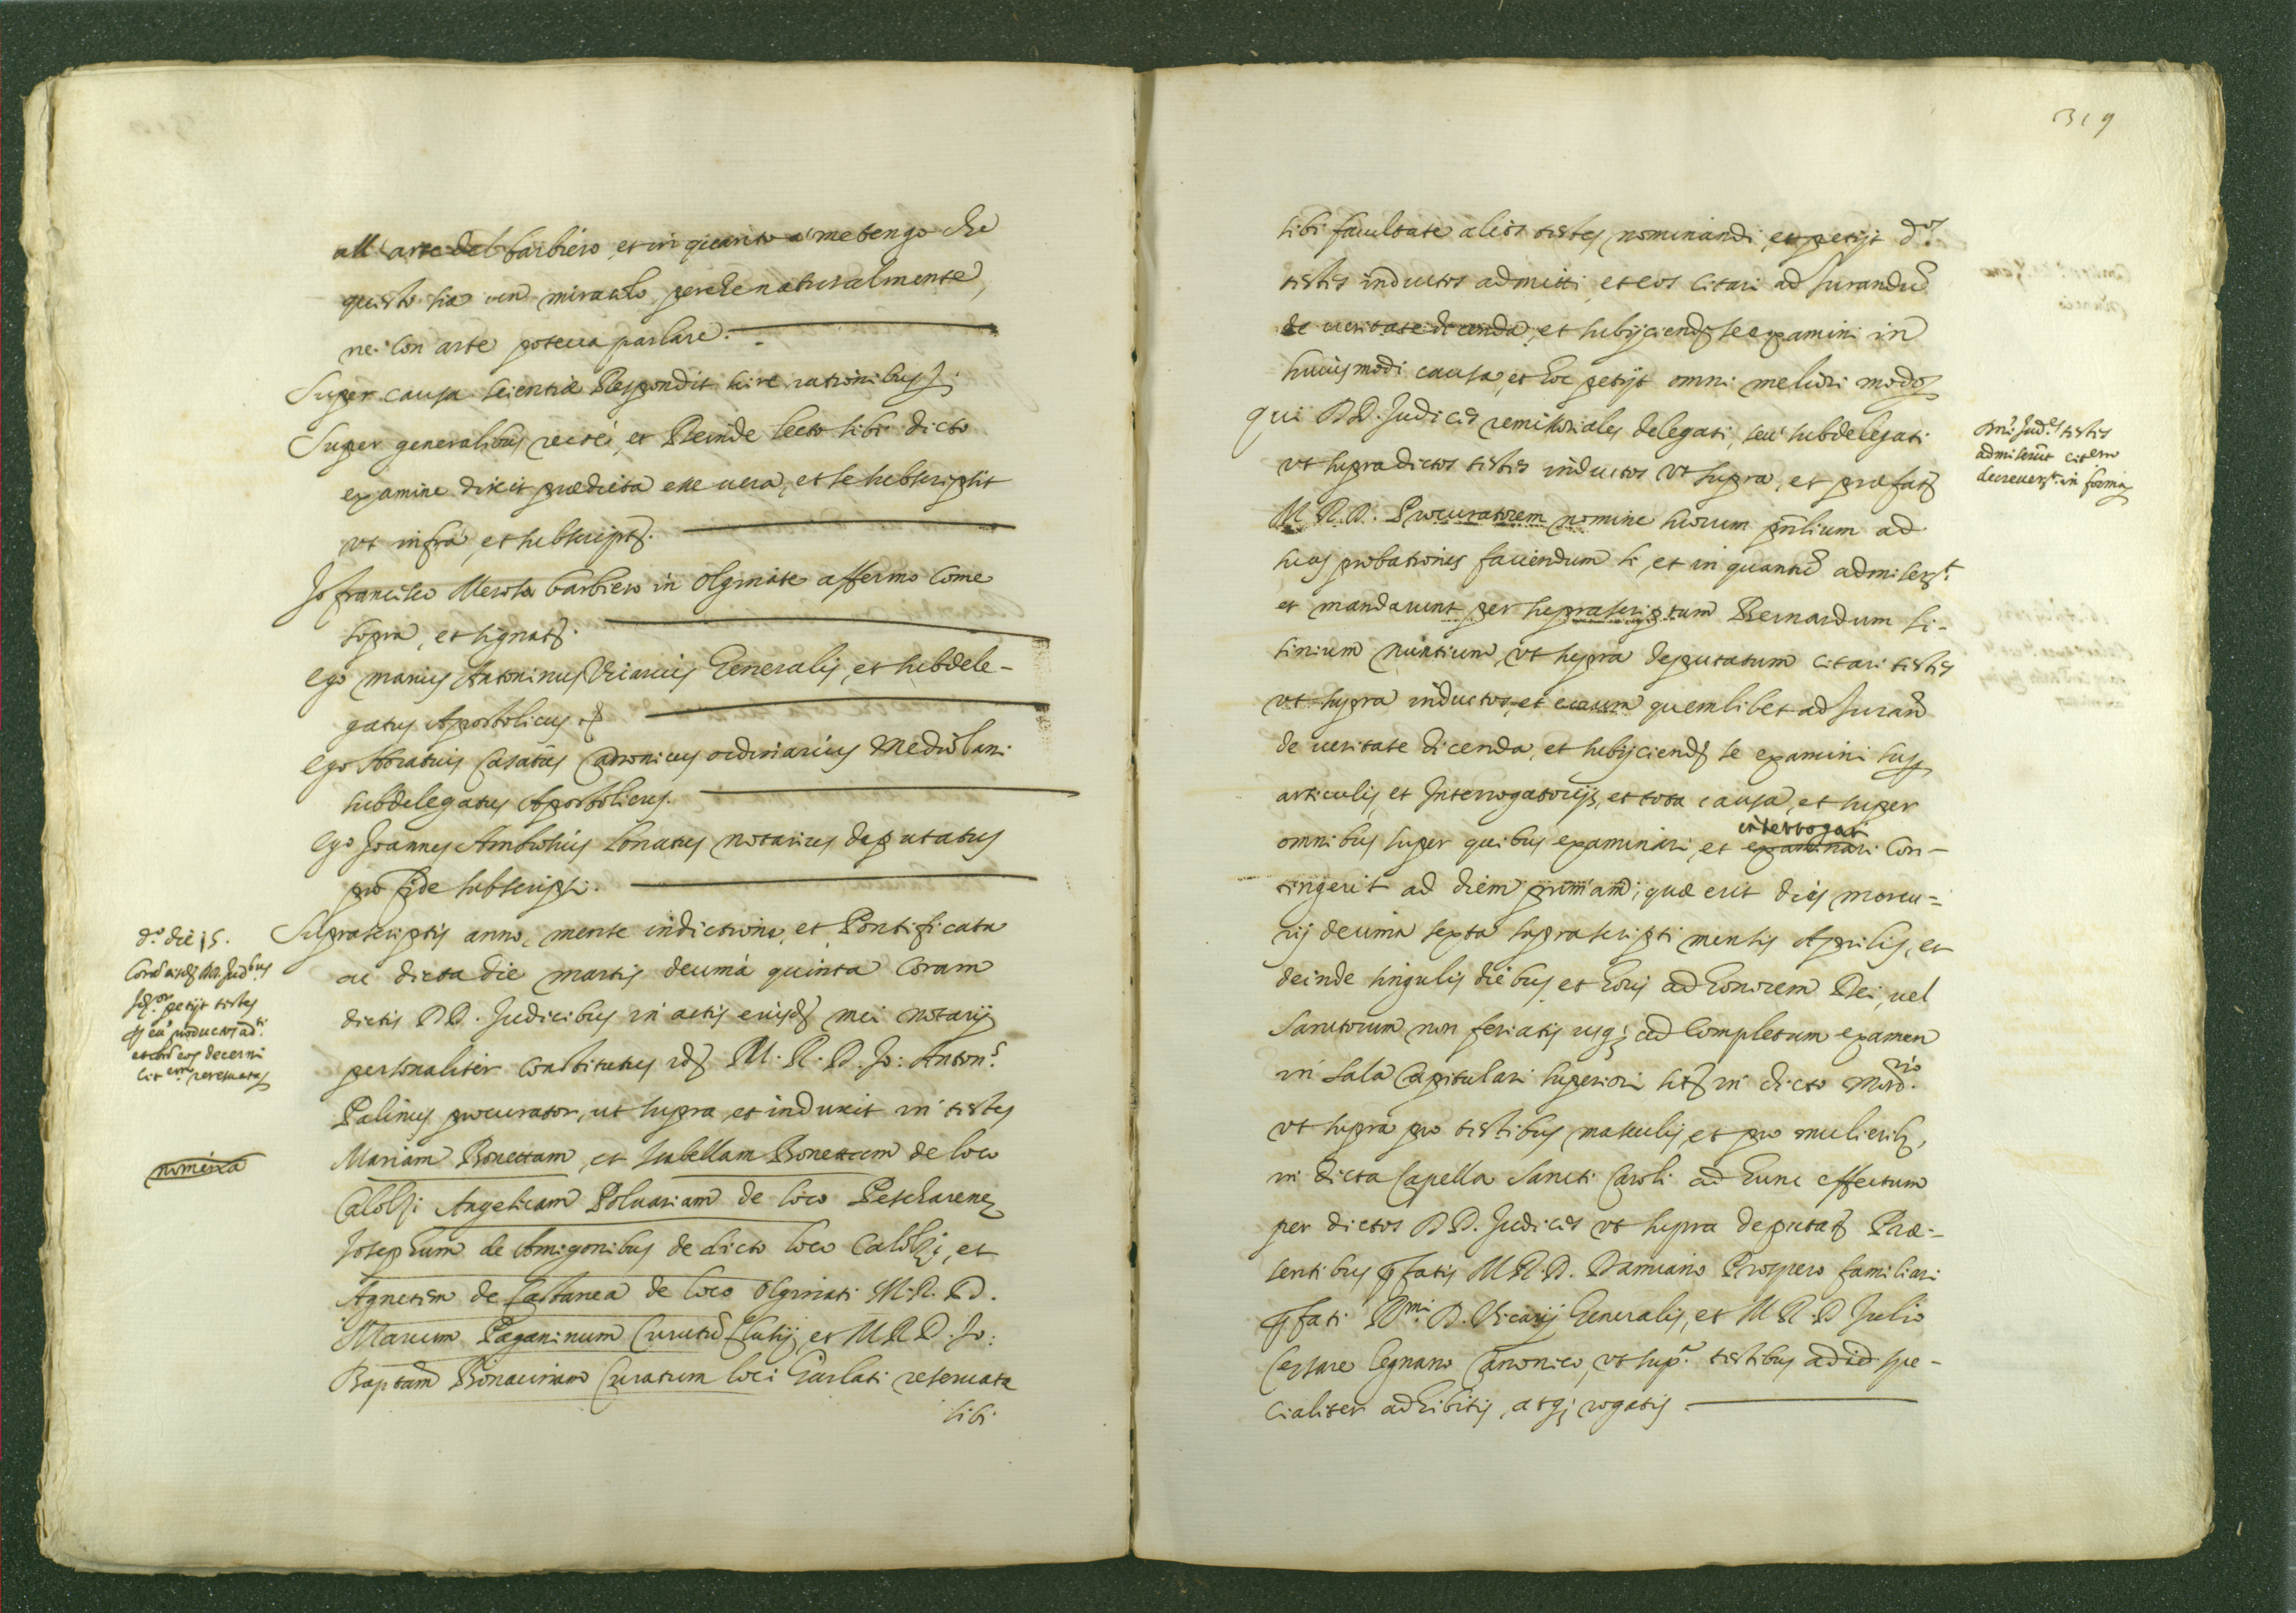 all'arte del barbiero, et in quanto a' me tengo che
questo sia un miracolo, perche naturalmente,
ne' con arte poteva parlare.
Super causa scientiæ Respondit scire rationibus s.
Super generalibus recte, et Deinde lecto sibi dicto
examine dixit prædicta esse uera, et se subscripsit
vt infra, et subscript.
Io francesco Merosa barbiero in Olginate affermo come
sopra, et signat.
Ego Marius Antoninus Vicarius Generalis, et subdele-
gatus Apostolicus
Ego Horatius Casatus Canonicus ordinarius Mediolani
subdelegatus Apostolicus.
Ego Joannes Ambrosius Lonatus notarius deputatus
pro fide subscripsi.
d.º die 15.
petijt testes
decerni
reseruata
nomina
Suprascriptis anno, mense indictione, et Pontificatu
ac dicta die martis decima quinta Coram
dictis DD. Judicibus in actis eiusd mei notarij
personaliter constitutus id M. R. D. Jo: Anton.s
Palinus procurator, ut supra et induxit in testes
Mariam Bonettam, et Isabellam Bonettam de loco
Calolzi Angelicam Poluariam de loco Pescharene
Josephum de Amigonibus de dicto loco Calolzi, et
Agnetem de Castanea de loco Olginati M. R. D.
Marcum Paganinum Curatū et M R D. Jo:
Baptam Bonacinam Curatum loci Garlati reseruata
sibi
319
sibi facultate alios testes nominandi, et petijt d.os
testes inductos admitti, et eos citari ad Jurandū
de ueritate dicenda, et subijciend se examini in
huiusmodi causa, et hoc petijt omni meliori modo
Qui DD. Judices remissoriales delegati, seu subdelegati
vt supra dictos testes inductos vt supra, et præfat
M. R. D. Procuratorem nomine suorum pnlium ad
suas probationes faciendum si, et in quantū admiser.t
et mandarunt per suprascriptum Bernardum Si-
tinium nuntium, vt supra deputatum citari testes
vt supra inductos, et eorum quemlibet ad Jurand
de ueritate dicenda, et subijciend se examini sup
articulis, et Interrogatorijs, et tota causa, et super
omnibus super quibus examinari, et examinari con-
interrogari
tingerit ad diem primam, quæ erit dies mercu-
rij decima sexta suprascripti mensis Aprilis, et
deinde singulis diebus et horis ad honorem Dei, uel
Sanctorum non feriatis usq; ad completum examen
in sala Capitulari superiori sit in dicto Mon.rio
vt supra pro testibus masculis, et pro mulierib,
in dicta Capella Sancti Caroli ad hunc effectum
per dictos DD. Judices vt supra deputat Præ-
sentibus pfatis M R. D. Damiano Prospero familiari
pfati R.mi D. Vicarij Generalis, et M R. D Julio
Cesare Legnano Canonico, vt sup.a testibus ad id spe-
cialiter adhibitis, atq; rogatis.
testes
admiserūt
decreuer.t in forma